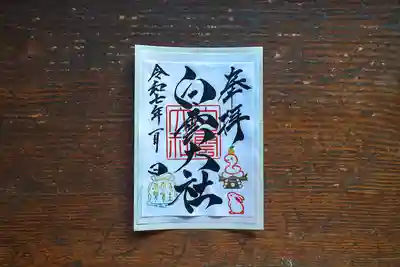 奉拝
白雲大社
令和七年一月